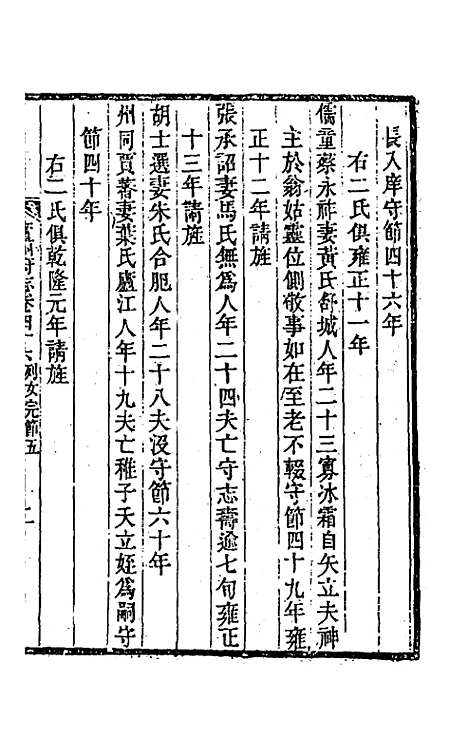 長入庠守節四十六年
右二氏俱雍正十一年
儒童蔡永祚妻黃氏舒城人年二十三寡冰霜自矢立夫神
主於翁姑靈位側敬事如在至老不輟守節四十九年雍
正十二年請旌
張承詔妻馬氏無爲人年二十四夫亡守志壽逾七旬雍正
十三年請旌
胡士選妻朱氏合肥人年二十八夫沒守節六十年
州同賈蕃妻葉氏廬江人年十九夫亡稚子夭立姪爲嗣守
節四十年
右二氏俱乾隆元年請旌
州府志卷四十六列女完節五